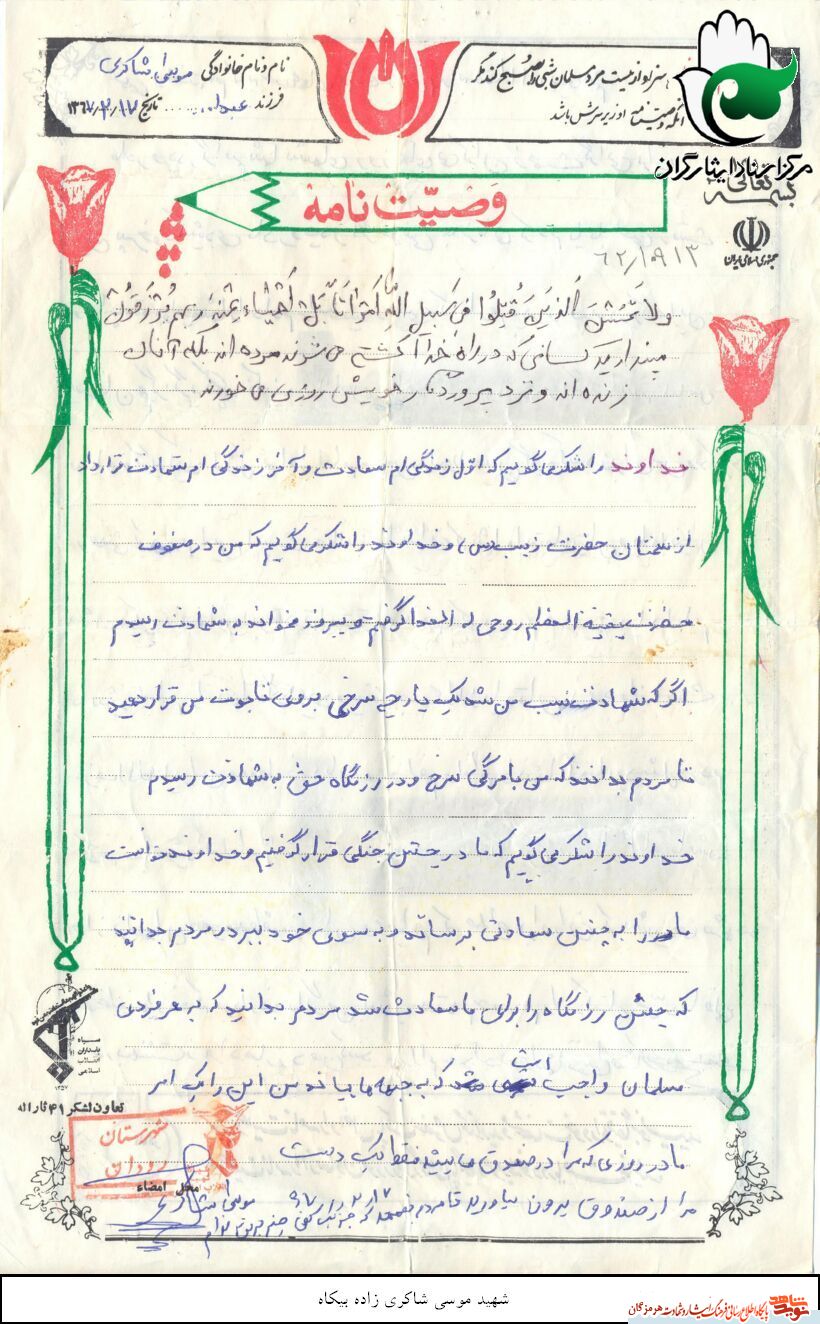 سزاوار نیست مرد مسلمان شبی را صبح کند مگر
آنکه وصیتنامه او زیر سرش باشد
نام و نام خانوادگی موسی شاکری
فرزند عبداله تاریخ ۱۳۶۷/۲/۱۷
مرکز اسناد ایثارگران
بسمه تعالی
وصیّت نامه
جمهوری اسلامی ایران
ولا تحسبن الذین قُتِلُوا فی سبیل اللّه امواتا بل احیاء عند ربهم یُرزقون
مپندارید کسانی که در راه خدا کشته می شوند مرده اند بلکه آنان
زنده اند و نزد پروردگار خویش روزی می خورند
خداوند را شکر می گویم که اوّل زندگی ام سعادت و آخر زندگی ام شهادت قرار داد
از سخنان حضرت زینب (س) و خداوند را شکر می گویم که من در صفوف
حضرت بقیة العظم روحی له الفدا گرفتم و پیروزمنداند به شهادت رسیدم
اگر که شهادت نسیب من شد یک پارچه سرخی بروی تابوت من قرار دهید
تا مردم بدانند که من با مرگی سرخ و در رزمگاه حق به شهادت رسیدم
خداوند را شکر می گویم که ما در چنین جنگی قرار گرفتیم و خداوند خواست
ما را به چنین سعادتی برساند و به سوی خود ببرد مردم بدانند
که چنین رزمگاه را برای ما سعادت شد مردم بدانید که به هر فردی
مسلمان واجب است که به جبهه ها بیاند من این را یک امر
مادر روزی که مرا در صندوق می بیند فقط یک دست
مرا از صندوق بیرون بیاورید تا مردم
موسی شاکری
۶۷/۲/۱۷
سپاه
پاسداران
انقلاب
اسلامی
۱۳۵۷
تعاون لشکر ۴۱ ثاراله
شهرستان
رودان
محل امضاء
شهید موسی شاکری زاده بیکاه
نوید شاهد
پایگاه اطلاع رسانی فرهنگ ایثار و شهادت هرمزگان